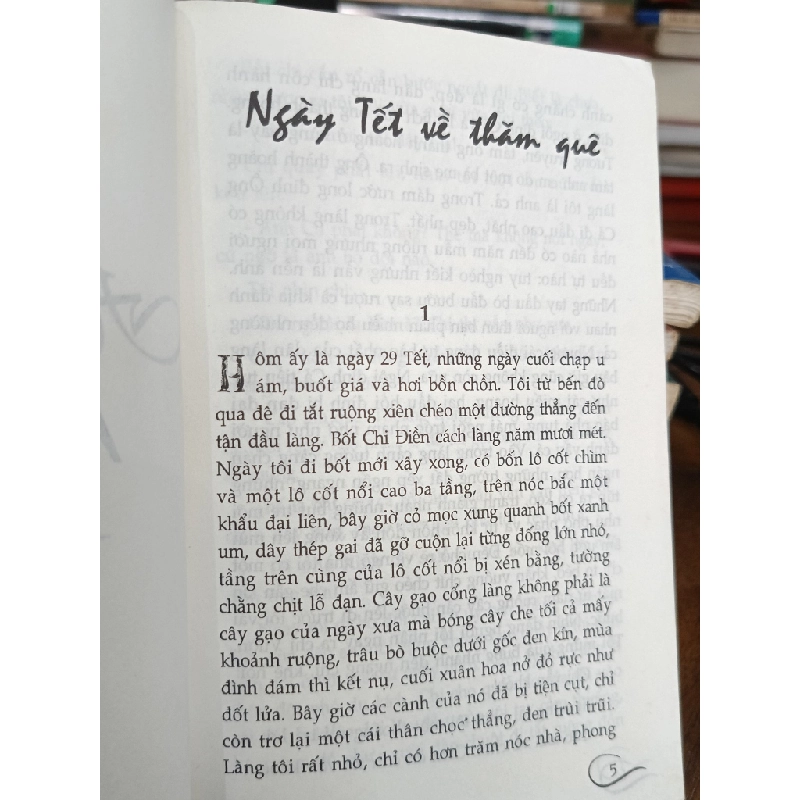 Ngày Tết về thăm quê
1
Hôm ấy là ngày 29 Tết, những ngày cuối chạp u
ám, buốt giá và hơi bồn chồn. Tôi từ bến đò
qua đê đi tắt ruộng xiên chéo một đường thẳng đến
tận đầu làng. Bốt Chi Điền cách làng năm mươi mét.
Ngày tôi đi bốt mới xây xong, có bốn lô cốt chìm
và một lô cốt nổi cao ba tầng, trên nóc bắc một
khẩu đại liên, bây giờ cỏ mọc xung quanh bốt xanh
um, dây thép gai đã gỡ cuộn lại từng đống lớn nhỏ,
tầng trên cùng của lô cốt nổi bị xén bằng, tường
chằng chịt lỗ đạn. Cây gạo cổng làng không phải là
cây gạo của ngày xưa mà bóng cây che tối cả mấy
khoảnh ruộng, trâu bò buộc dưới gốc đen kín, mùa
đình đám thì kết nụ, cuối xuân hoa nở đỏ rực như
đốt lửa. Bây giờ các cành của nó đã bị tiện cụt, chỉ
còn trơ lại một cái thân chọc thẳng, đen trùi trũi.
Làng tôi rất nhỏ, chỉ có hơn trăm nóc nhà, phong
5